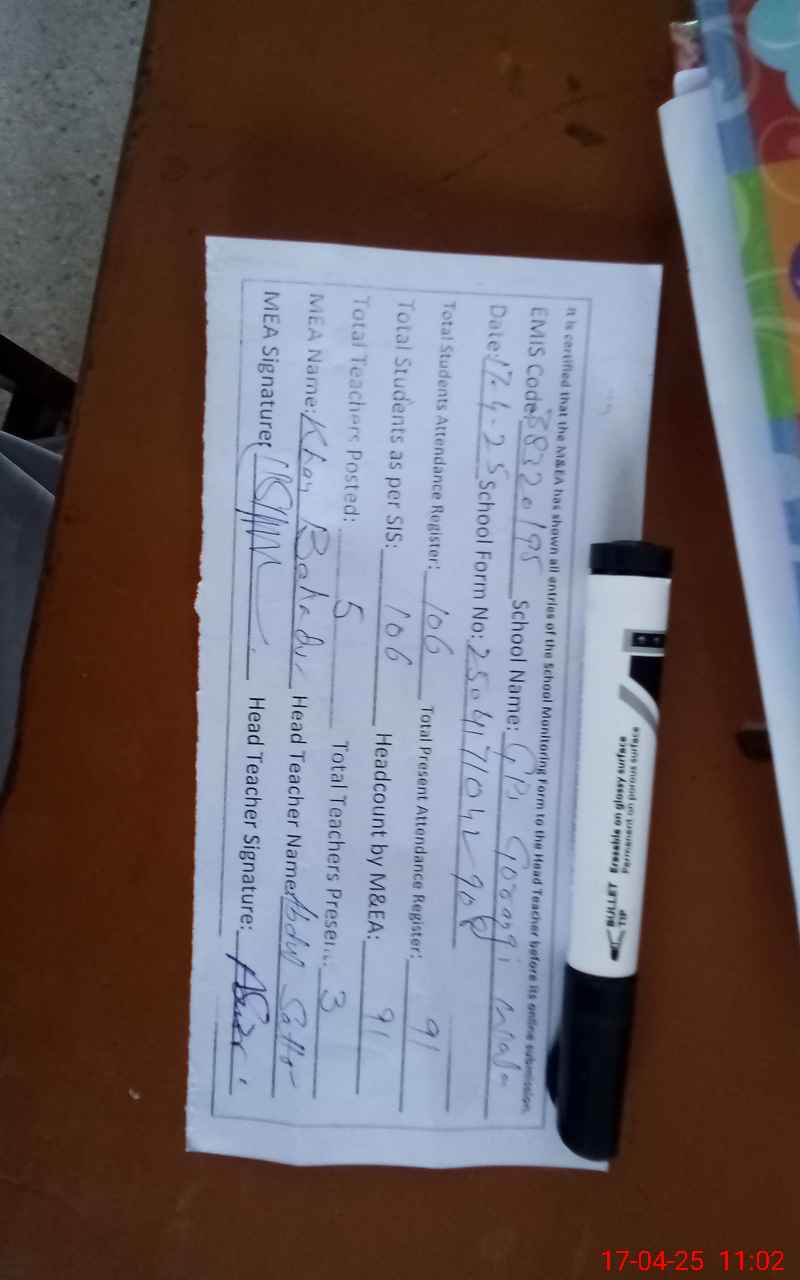 It is certified that the M&EA has shown all entries of the School Monitoring Form to the Head Teacher before its online submission.
EMIS Code: School Name: GPS
Date: 17.4.25 School Form No:
Total Students Attendance Register: 106 Total Present Attendance Register: 91
Total Students as per SIS: 106 Headcount by M&EA: 91
Total Teachers Posted: 5 Total Teachers Present: 3
MEA Name: Khan Bahadur Head Teacher Name: Abdul Sattar
MEA Signature: Head Teacher Signature:
Permanent on porous surface
Erasable on glossy surface
BULLET TIP
17-04-25 11:02